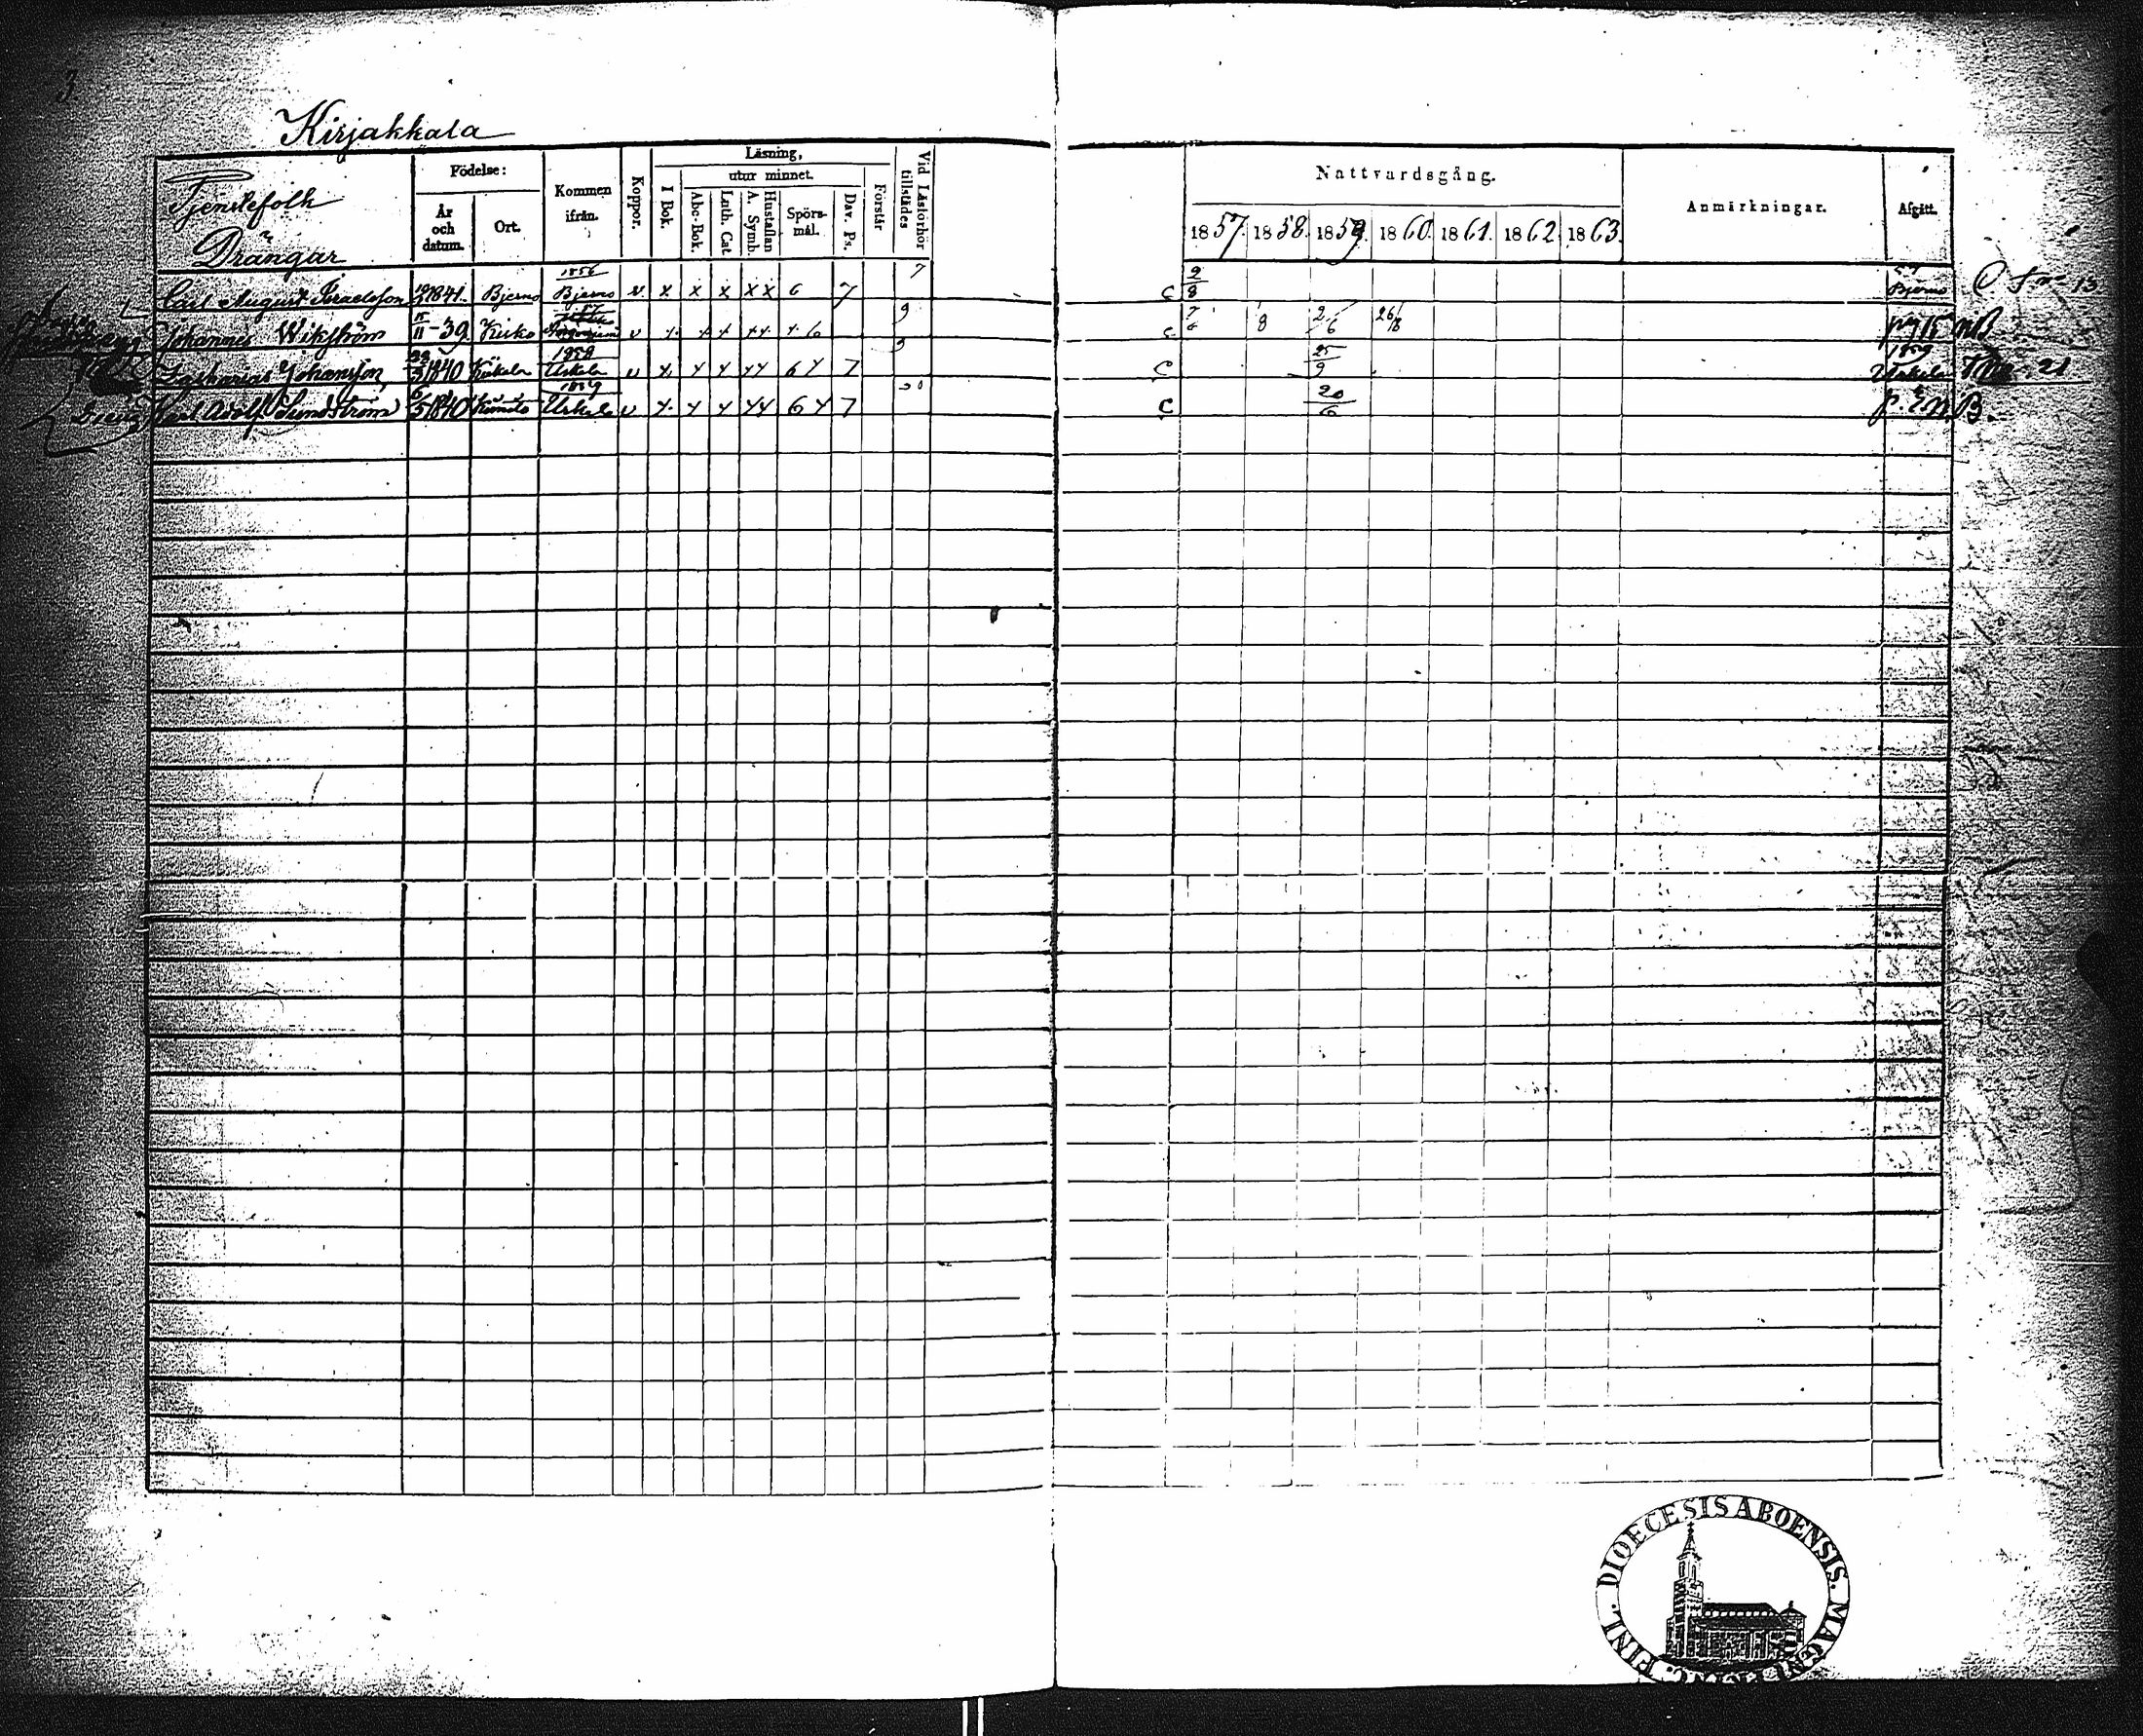 3.
Kirjakkala
Tjenstefolk
Drängar
Födelse:
År och datum.
Ort.
Kommen ifrån.
Koppor.
Läsning,
I Bok.
utur minnet.
Abc-Bok.
Luth. Cat
Hustaflan A. Symb.
Spörsmål.
Dav. Ps.
Förstår
Vid Läsförhör tillstädes
Nattvardsgång.
1857. 1858. 1859. 1860. 1861. 1862. 1863.
Anmärkningar.
Afgått.
Carl August Israelsson 1841. Bjerno 1856 Bjerno v x x x x x 6 7 7 C 2/8 Bjerno
Johannes Wikström 15/11 -39. Kisko v x x x x x x 6 9 c 7/6 8 2/6 26/8 pag 15 nB
Zacharias Johansson 1840 1858 Uskela v x x x x x 6 x 7 9 C 25/9 1859 Uskela
Dreng Karl Adolf Sundström 6/5 1840 Kimito 1859 Uskela v x x x x x 6 x 7 C 20/6 B.
DIOECESIS ABOENSIS. MAGNI DUC. FINL.